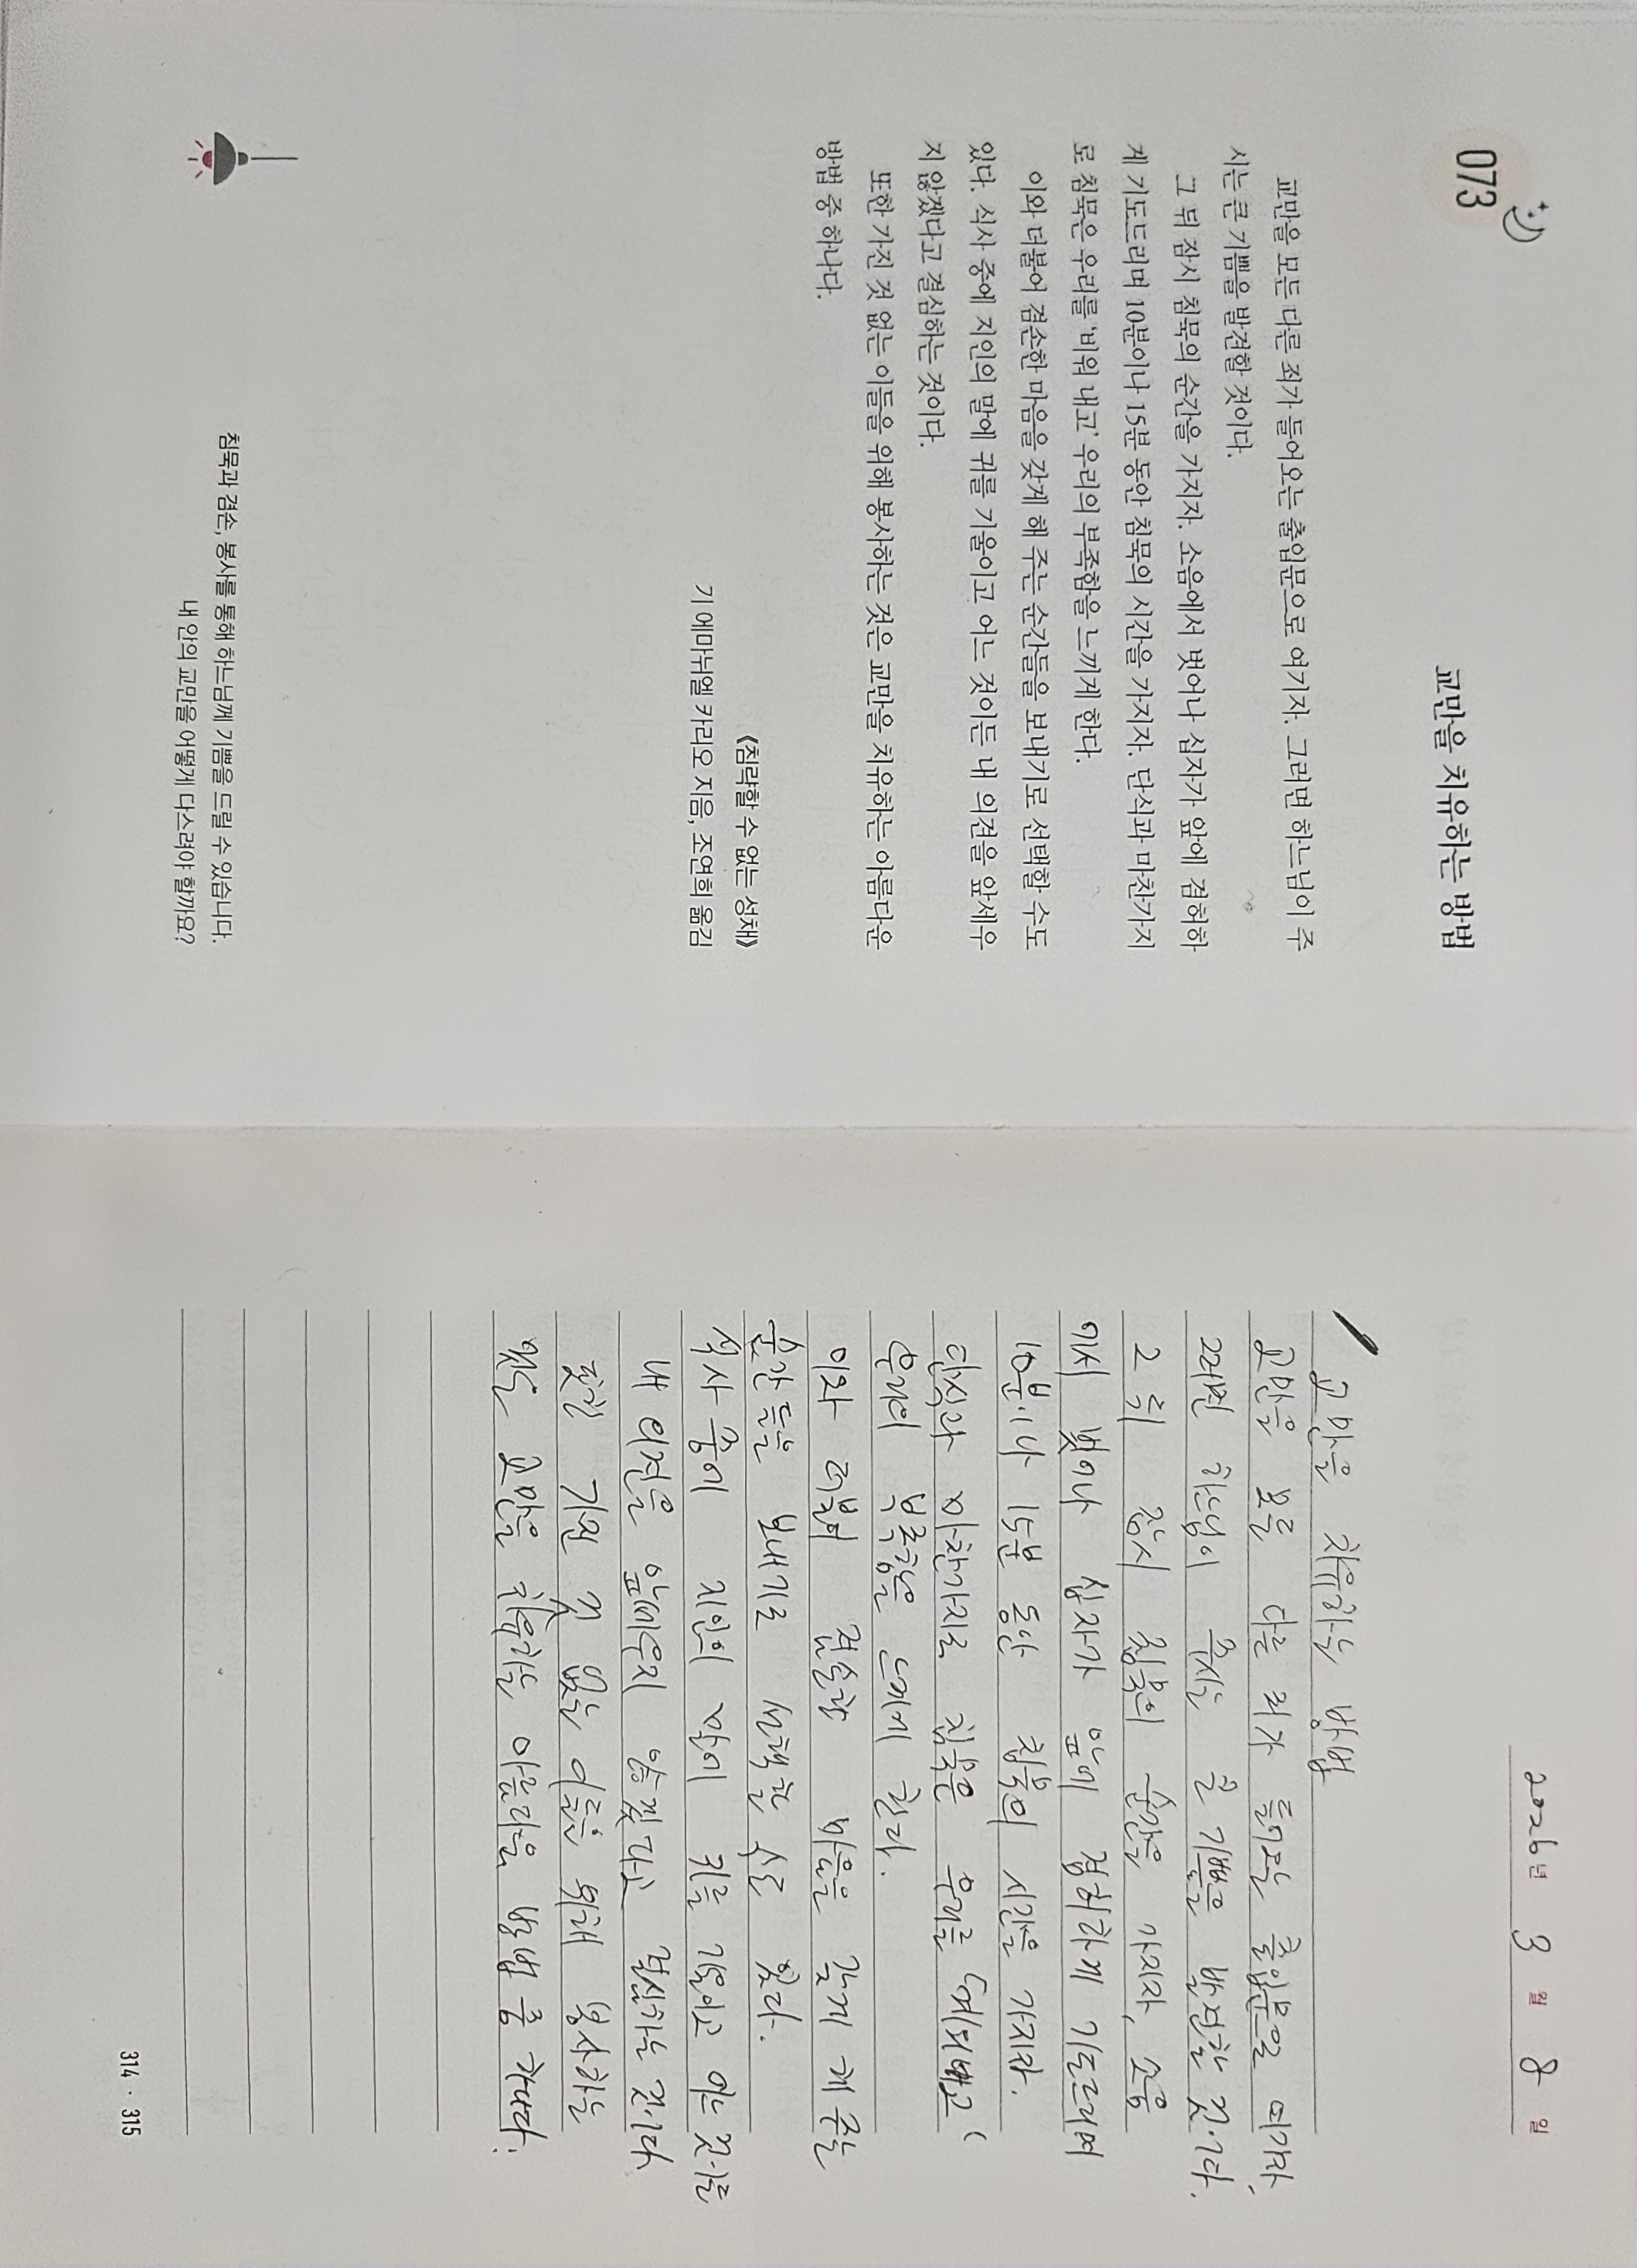 073
교만을 치유하는 방법
교만을 모든 다른 죄가 들어오는 출입문으로 여기자. 그러면 하느님이 주
시는 큰 기쁨을 발견할 것이다.
그 뒤 잠시 침묵의 순간을 가지자. 소음에서 벗어나 십자가 앞에 겸허하
게 기도드리며 10분이나 15분 동안 침묵의 시간을 가지자. 단식과 마찬가지
로 침묵은 우리를 ‘비워 내고’ 우리의 부족함을 느끼게 한다.
이와 더불어 겸손한 마음을 갖게 해 주는 순간들을 보내기로 선택할 수도
있다. 식사 중에 지인의 말에 귀를 기울이고 어느 것이든 내 의견을 앞세우
지 않겠다고 결심하는 것이다.
또한 가진 것 없는 이들을 위해 봉사하는 것은 교만을 치유하는 아름다운
방법 중 하나다.
《침략할 수 없는 성채》
기 에마뉘엘 카리오 지음, 조연희 옮김
침묵과 겸손, 봉사를 통해 하느님께 기쁨을 드릴 수 있습니다.
내 안의 교만을 어떻게 다스려야 할까요?
2026년 3월 8일
교만을 치유하는 방법
교만을 모든 다른 죄가 들어오는 출입문으로 여기자.
그러면 하느님이 주시는 큰 기쁨을 발견할 것이다.
그 뒤 잠시 침묵의 순간을 가지자, 소음
에서 벗어나 십자가 앞에 겸허하게 기도드리며
10분이나 15분 동안 침묵의 시간을 가지자.
단식과 마찬가지로 침묵은 우리를 비워내고
우리의 부족함을 느끼게 한다.
이와 더불어 겸손한 마음을 갖게 해 주는
순간들을 보내기로 선택할 수도 있다.
식사 중에 지인의 말에 귀를 기울이고 어느 것이든
내 의견을 앞세우지 않겠다고 결심하는 것이다.
또한 가진 것 없는 이들을 위해 봉사하는
것은 교만을 치유하는 아름다운 방법 중 하나다.
314 · 315